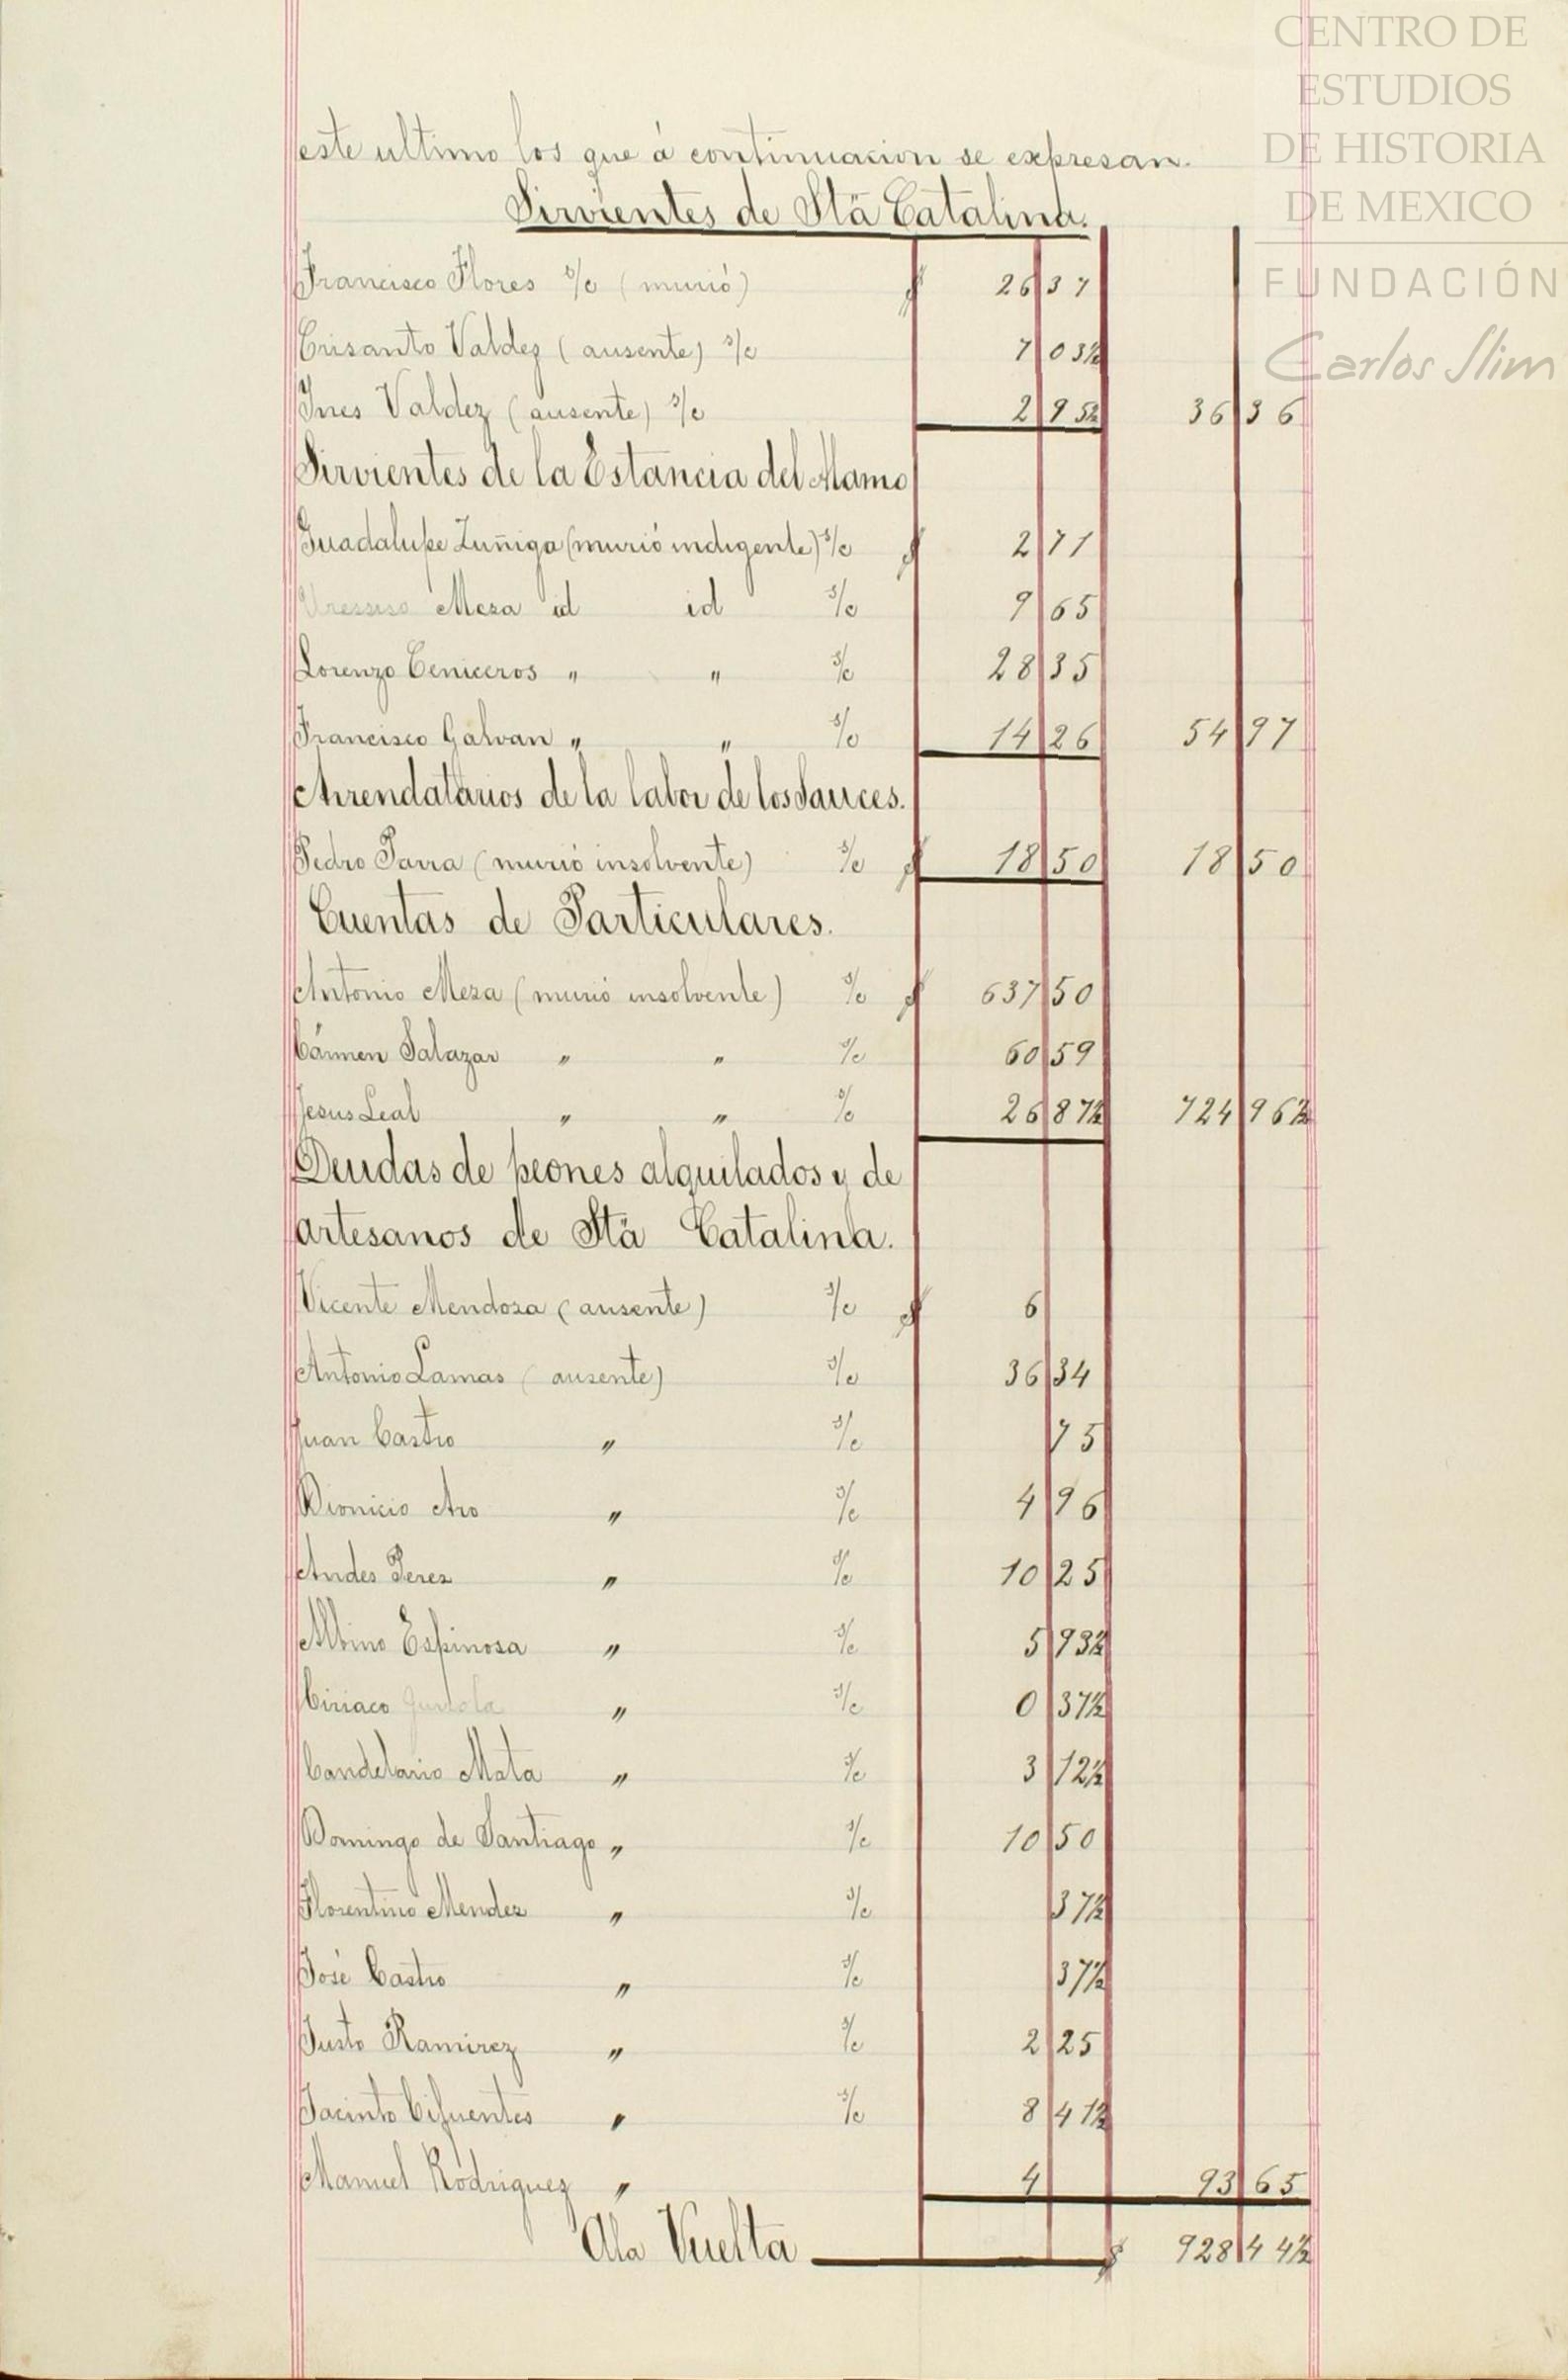 CENTRO DE
ESTUDIOS
DE HISTORIA
DE MEXICO
FUNDACIÓN
Carlos Slim
este ultimo los que á continuacion se expresan.
Sirvientes de Stā Catalina.
Francisco Flores s/c (murió) $ 26 37
Crisanto Valdez (ausente) s/c 7 03½
Ines Valdez (ausente) s/c 2 95½ 36 36
Sirvientes de la Estancia del Alamo
Guadalupe Zuñiga (murió indigente) s/c $ 2 71
Meza id id s/c 9 65
Lorenzo Ceniceros " " s/c 28 35
Francisco Galvan " " s/c 14 26 54 97
Arrendatarios de la labor de los Sauces.
Pedro Parra (murió insolvente) s/c $ 18 50 18 50
Cuentas de Particulares.
Antonio Meza (murió insolvente) s/c $ 637 50
Cármen Salazar " " s/c 60 59
Jesus Leal " " s/c 26 87½ 724 96½
Deudas de peones alquilados y de
artesanos de Stā Catalina.
Vicente Mendoza (ausente) s/c $ 6
Antonio Lamas (ausente) s/c 36 34
Juan Castro " s/c 75
Dionicio Aro " s/c 4 96
Andes Perez " s/c 10 25
Albino Espinosa " s/c 5 93½
Ciriaco " s/c 0 37½
Candelario Mata " s/c 3 12½
Domingo de Santiago " s/c 10 50
Florentino Mendez " s/c 37½
José Castro " s/c 37½
Justo Ramirez " s/c 2 25
Jacinto Cifuentes " s/c 8 41½
Manuel Rodriguez " 4 93 65
Ala Vuelta $ 928 44½